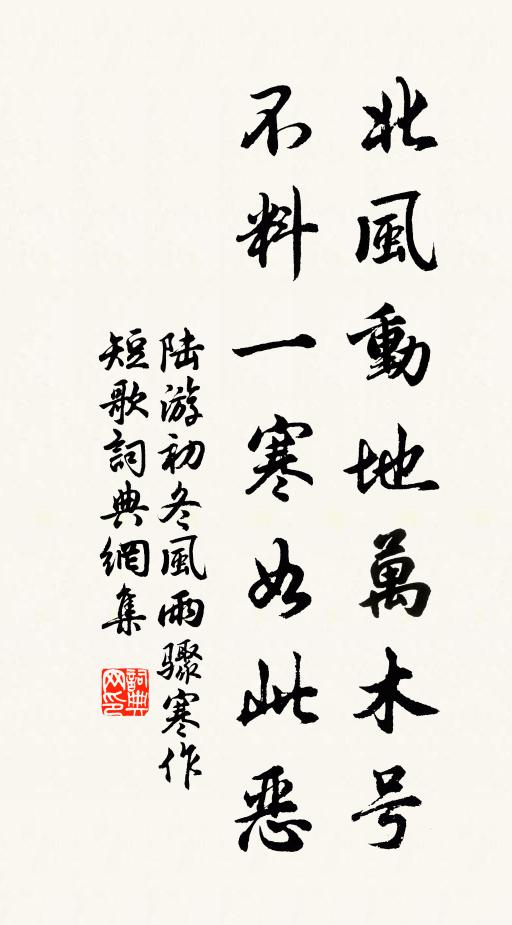 北風動地萬木号
不料一寒如此惡
陆游初冬風雨驟寒作
短歌詞典網集
詞典网印